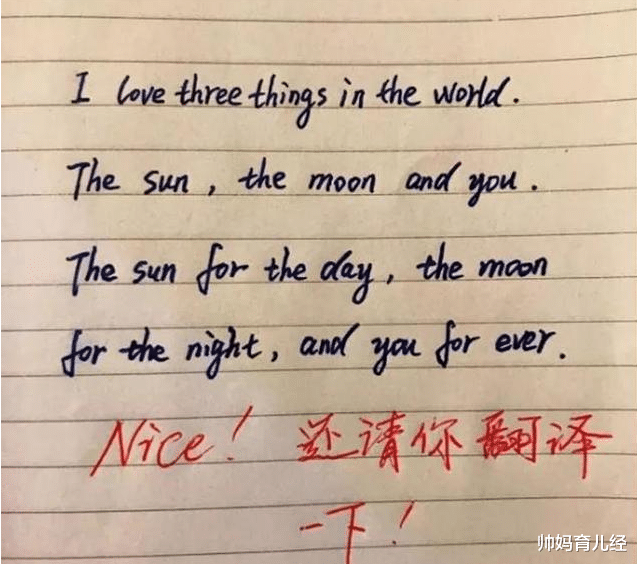 I love three things in the world.
The sun, the moon and you.
The sun for the day, the moon
for the night, and you for ever.
Nice! 还请你翻译
一下!
帅妈育儿经